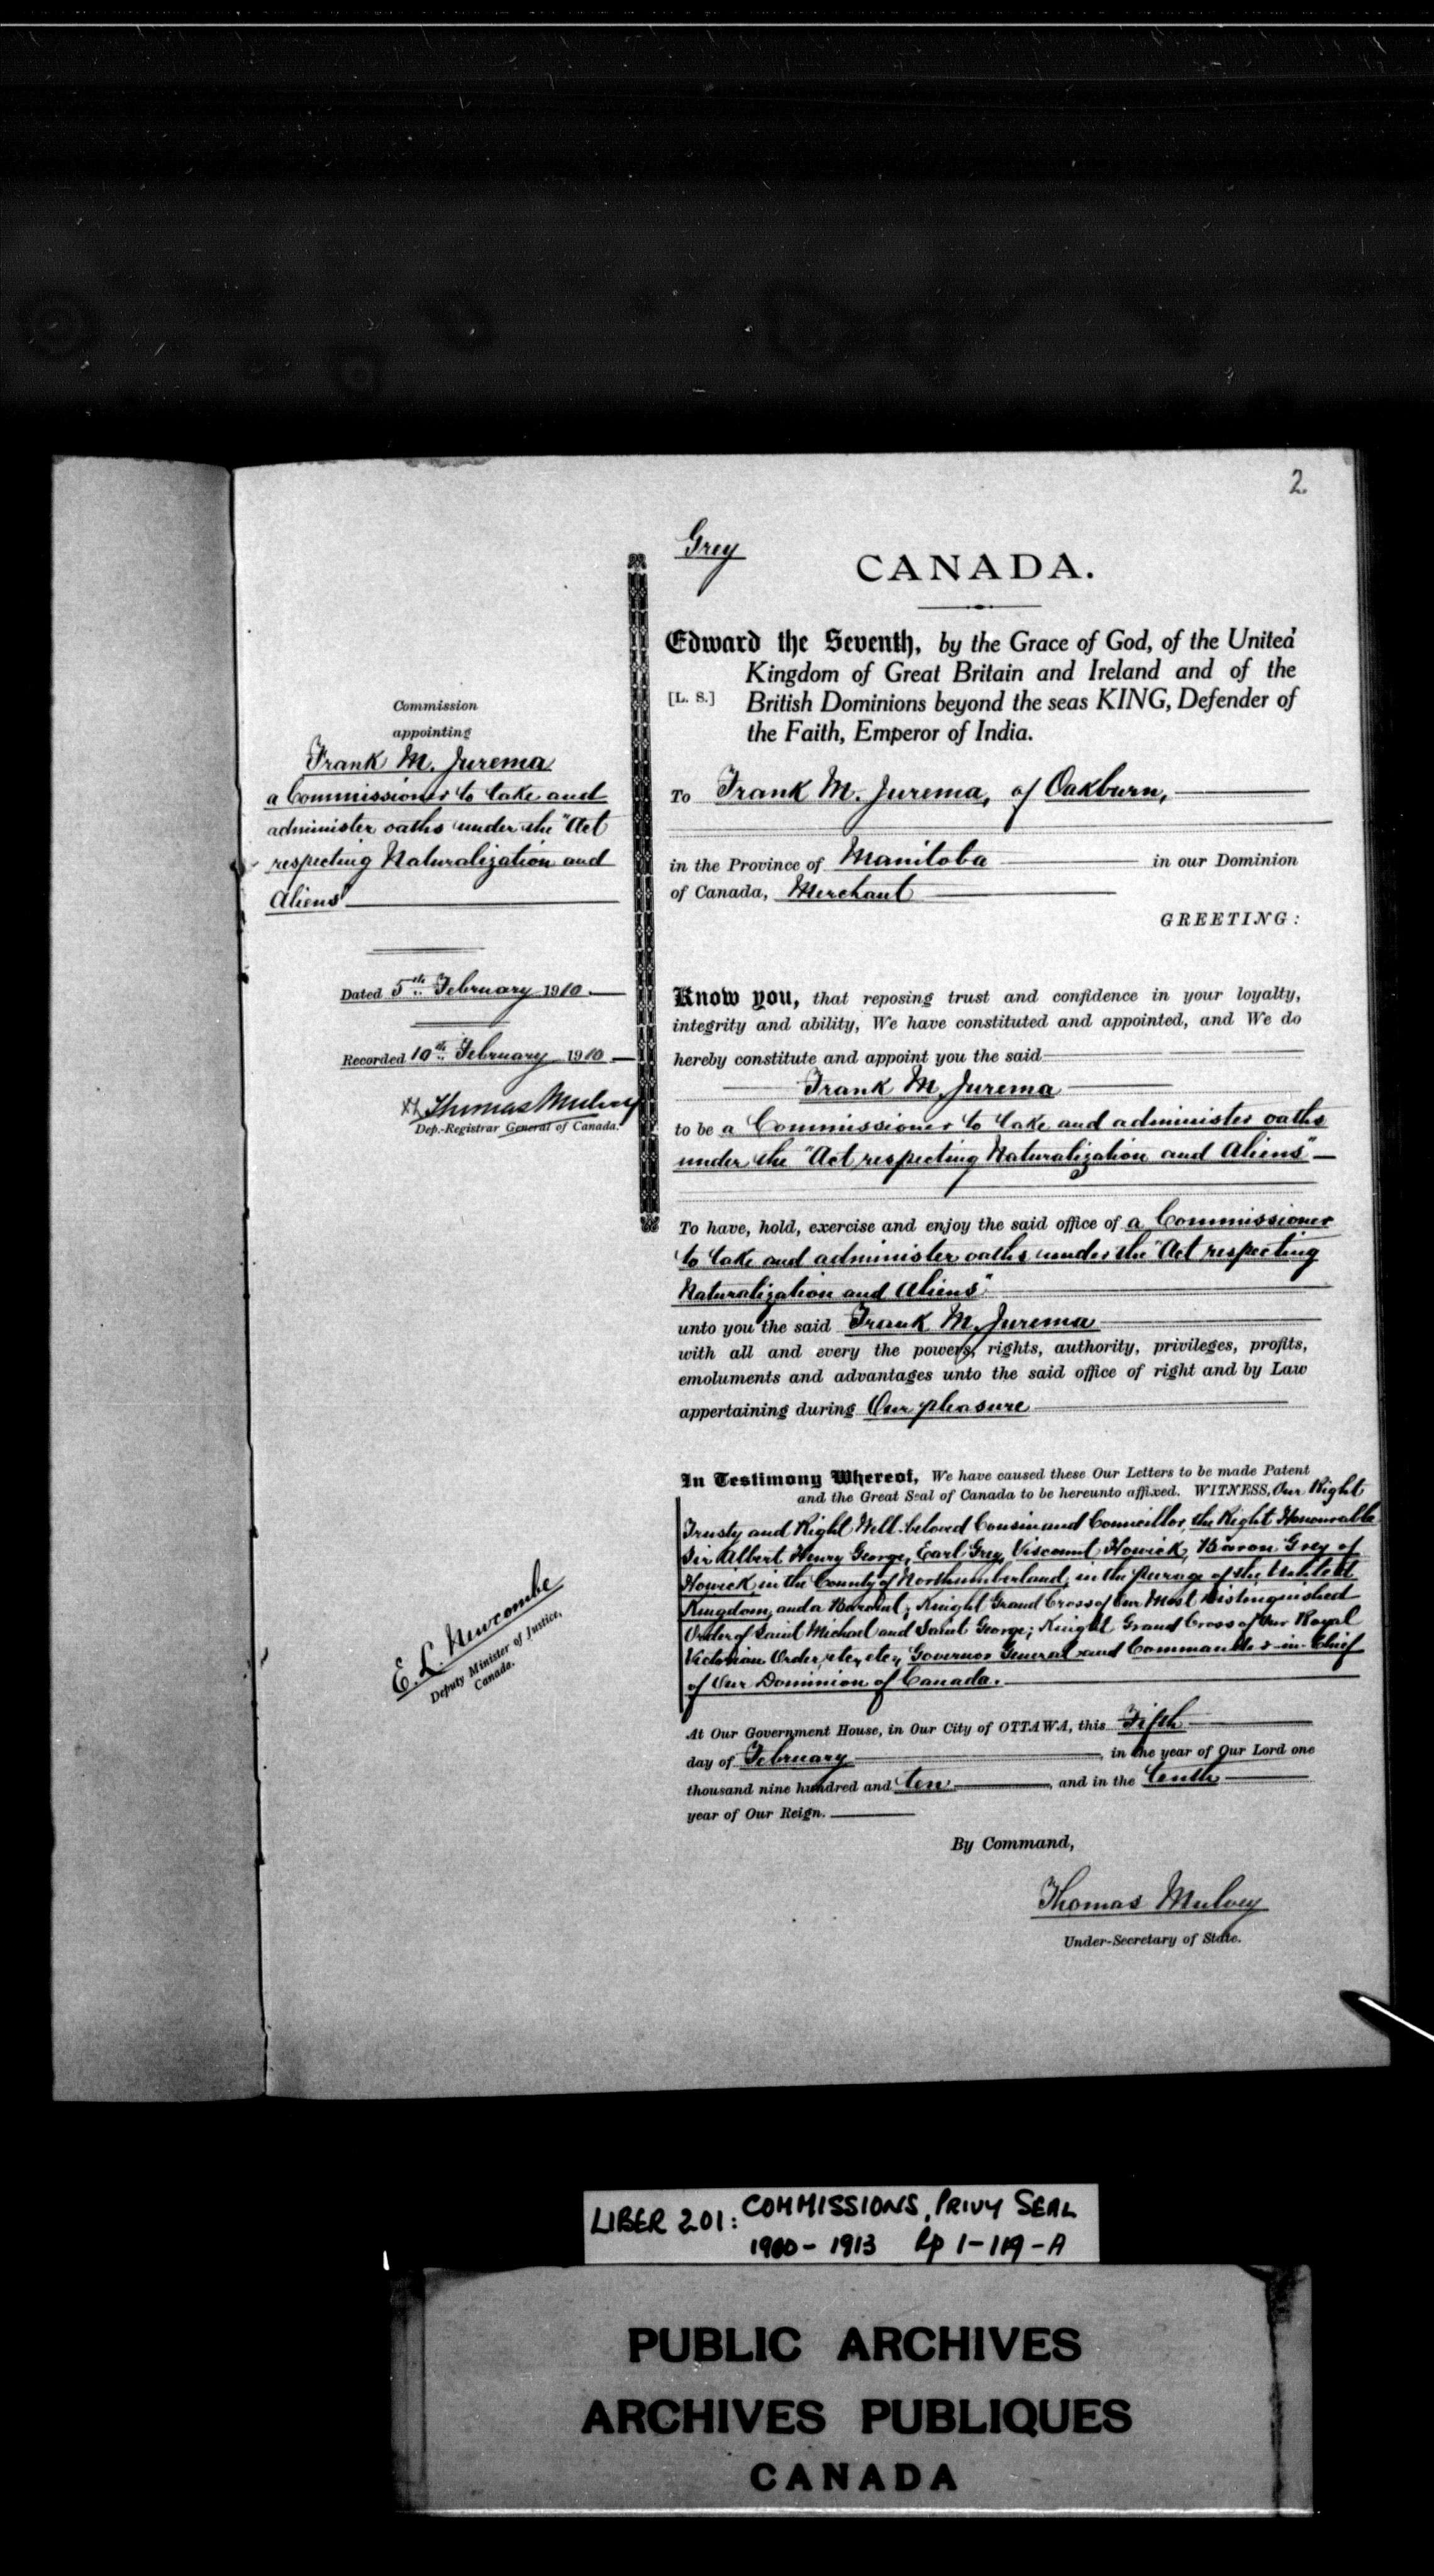 2
Grey
CANADA.
Edward the Seventh, by the Grace of God, of the United
Kingdom of Great Britain and Ireland and of the
[L. S.] British Dominions beyond the seas KING, Defender of
the Faith, Emperor of India.
Commission
appointing
Frank M. Jurema
a Commissioner to take and
administer oaths under the "Act
respecting Naturalization and
Aliens"
Dated 5th February 1910.
Recorded 10th February 1910
Thomas Mulvey
Dep.-Registrar General of Canada.
To Frank M. Jurema, of Oakburn,
in the Province of Manitoba in our Dominion
of Canada, Merchant
GREETING:
Know you, that reposing trust and confidence in your loyalty,
integrity and ability, We have constituted and appointed, and We do
hereby constitute and appoint you the said
Frank M. Jurema
to be a Commissioner to take and administer oaths
under the "Act respecting Naturalization and Aliens"
To have, hold, exercise and enjoy the said office of a Commissioner
to take and administer oaths under the "Act respecting
Naturalization and Aliens"
unto you the said Frank M. Jurema
with all and every the powers, rights, authority, privileges, profits,
emoluments and advantages unto the said office of right and by Law
appertaining during Our pleasure
In Testimony Whereof, We have caused these Our Letters to be made Patent
and the Great Seal of Canada to be hereunto affixed. WITNESS, Our Right
Trusty and Right Well-beloved Cousin and Councillor, the Right Honourable
Sir Albert Henry George, Earl Grey, Viscount Howick, Baron Grey of
Howick, in the County of Northumberland, in the Peerage of the United
Kingdom, and a Baronet; Knight Grand Cross of Our Most Distinguished
Order of Saint Michael and Saint George; Knight Grand Cross of Our Royal
Victorian Order, etc., etc., Governor General and Commander-in-Chief
of Our Dominion of Canada.
E. L. Newcombe
Deputy Minister of Justice,
Canada.
At Our Government House, in Our City of OTTAWA, this Fifth
day of February, in the year of Our Lord one
thousand nine hundred and ten, and in the tenth
year of Our Reign.
By Command,
Thomas Mulvey
Under-Secretary of State.
LIBER 201: COMMISSIONS, PRIVY SEAL
1900-1913 Pp 1-119-A
PUBLIC ARCHIVES
ARCHIVES PUBLIQUES
CANADA